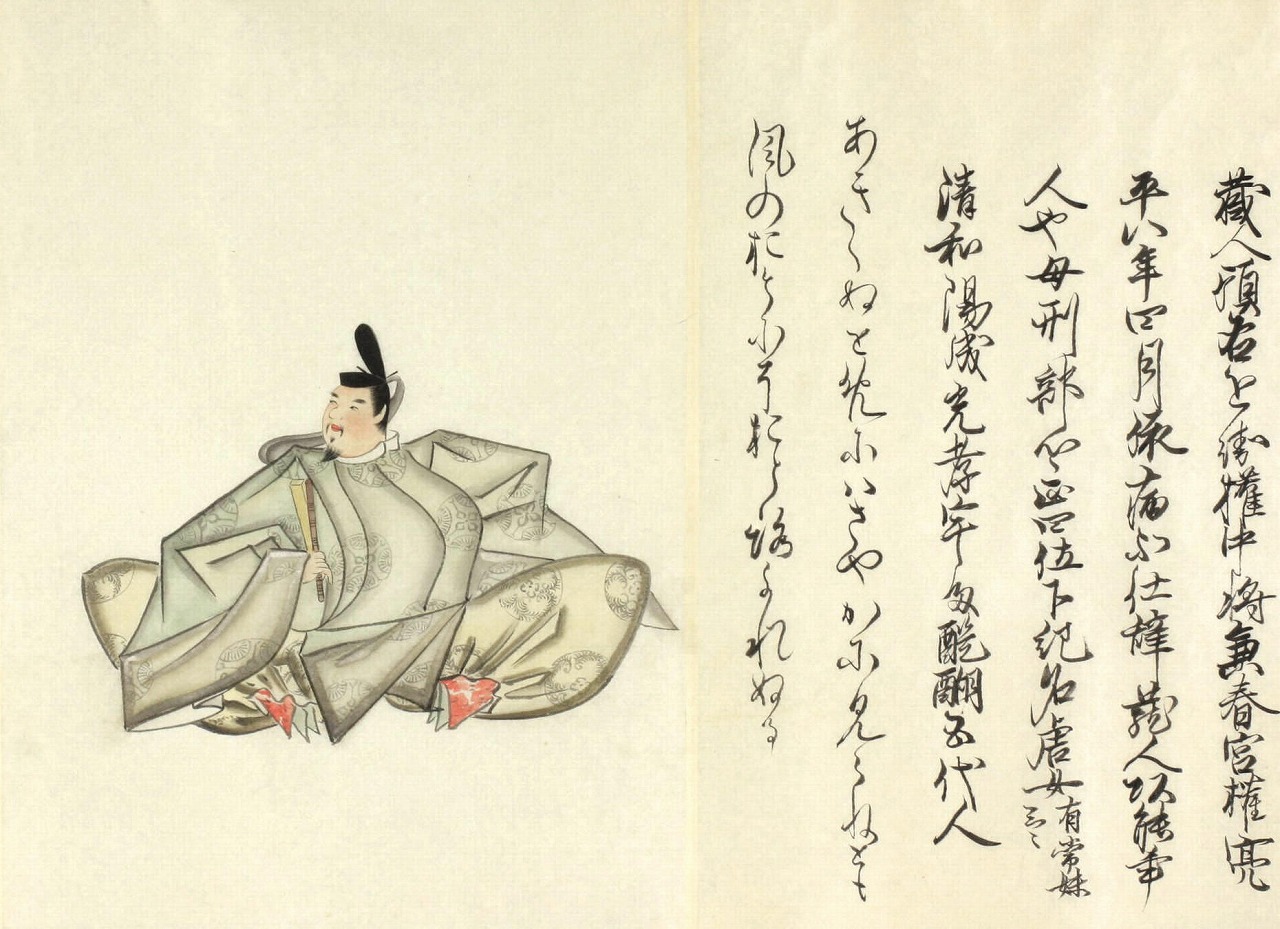 藏人頭右近衛權中将兼春宮權亮
平八年四月依病不仕辞蔵人頭能書
人也母刑部卿正四位下紀名虎女有常妹云々
清和陽成光孝宇多醍醐五代人
あきゝぬとめにハさやかに見えねとも
風のおとにそおとろかれぬる